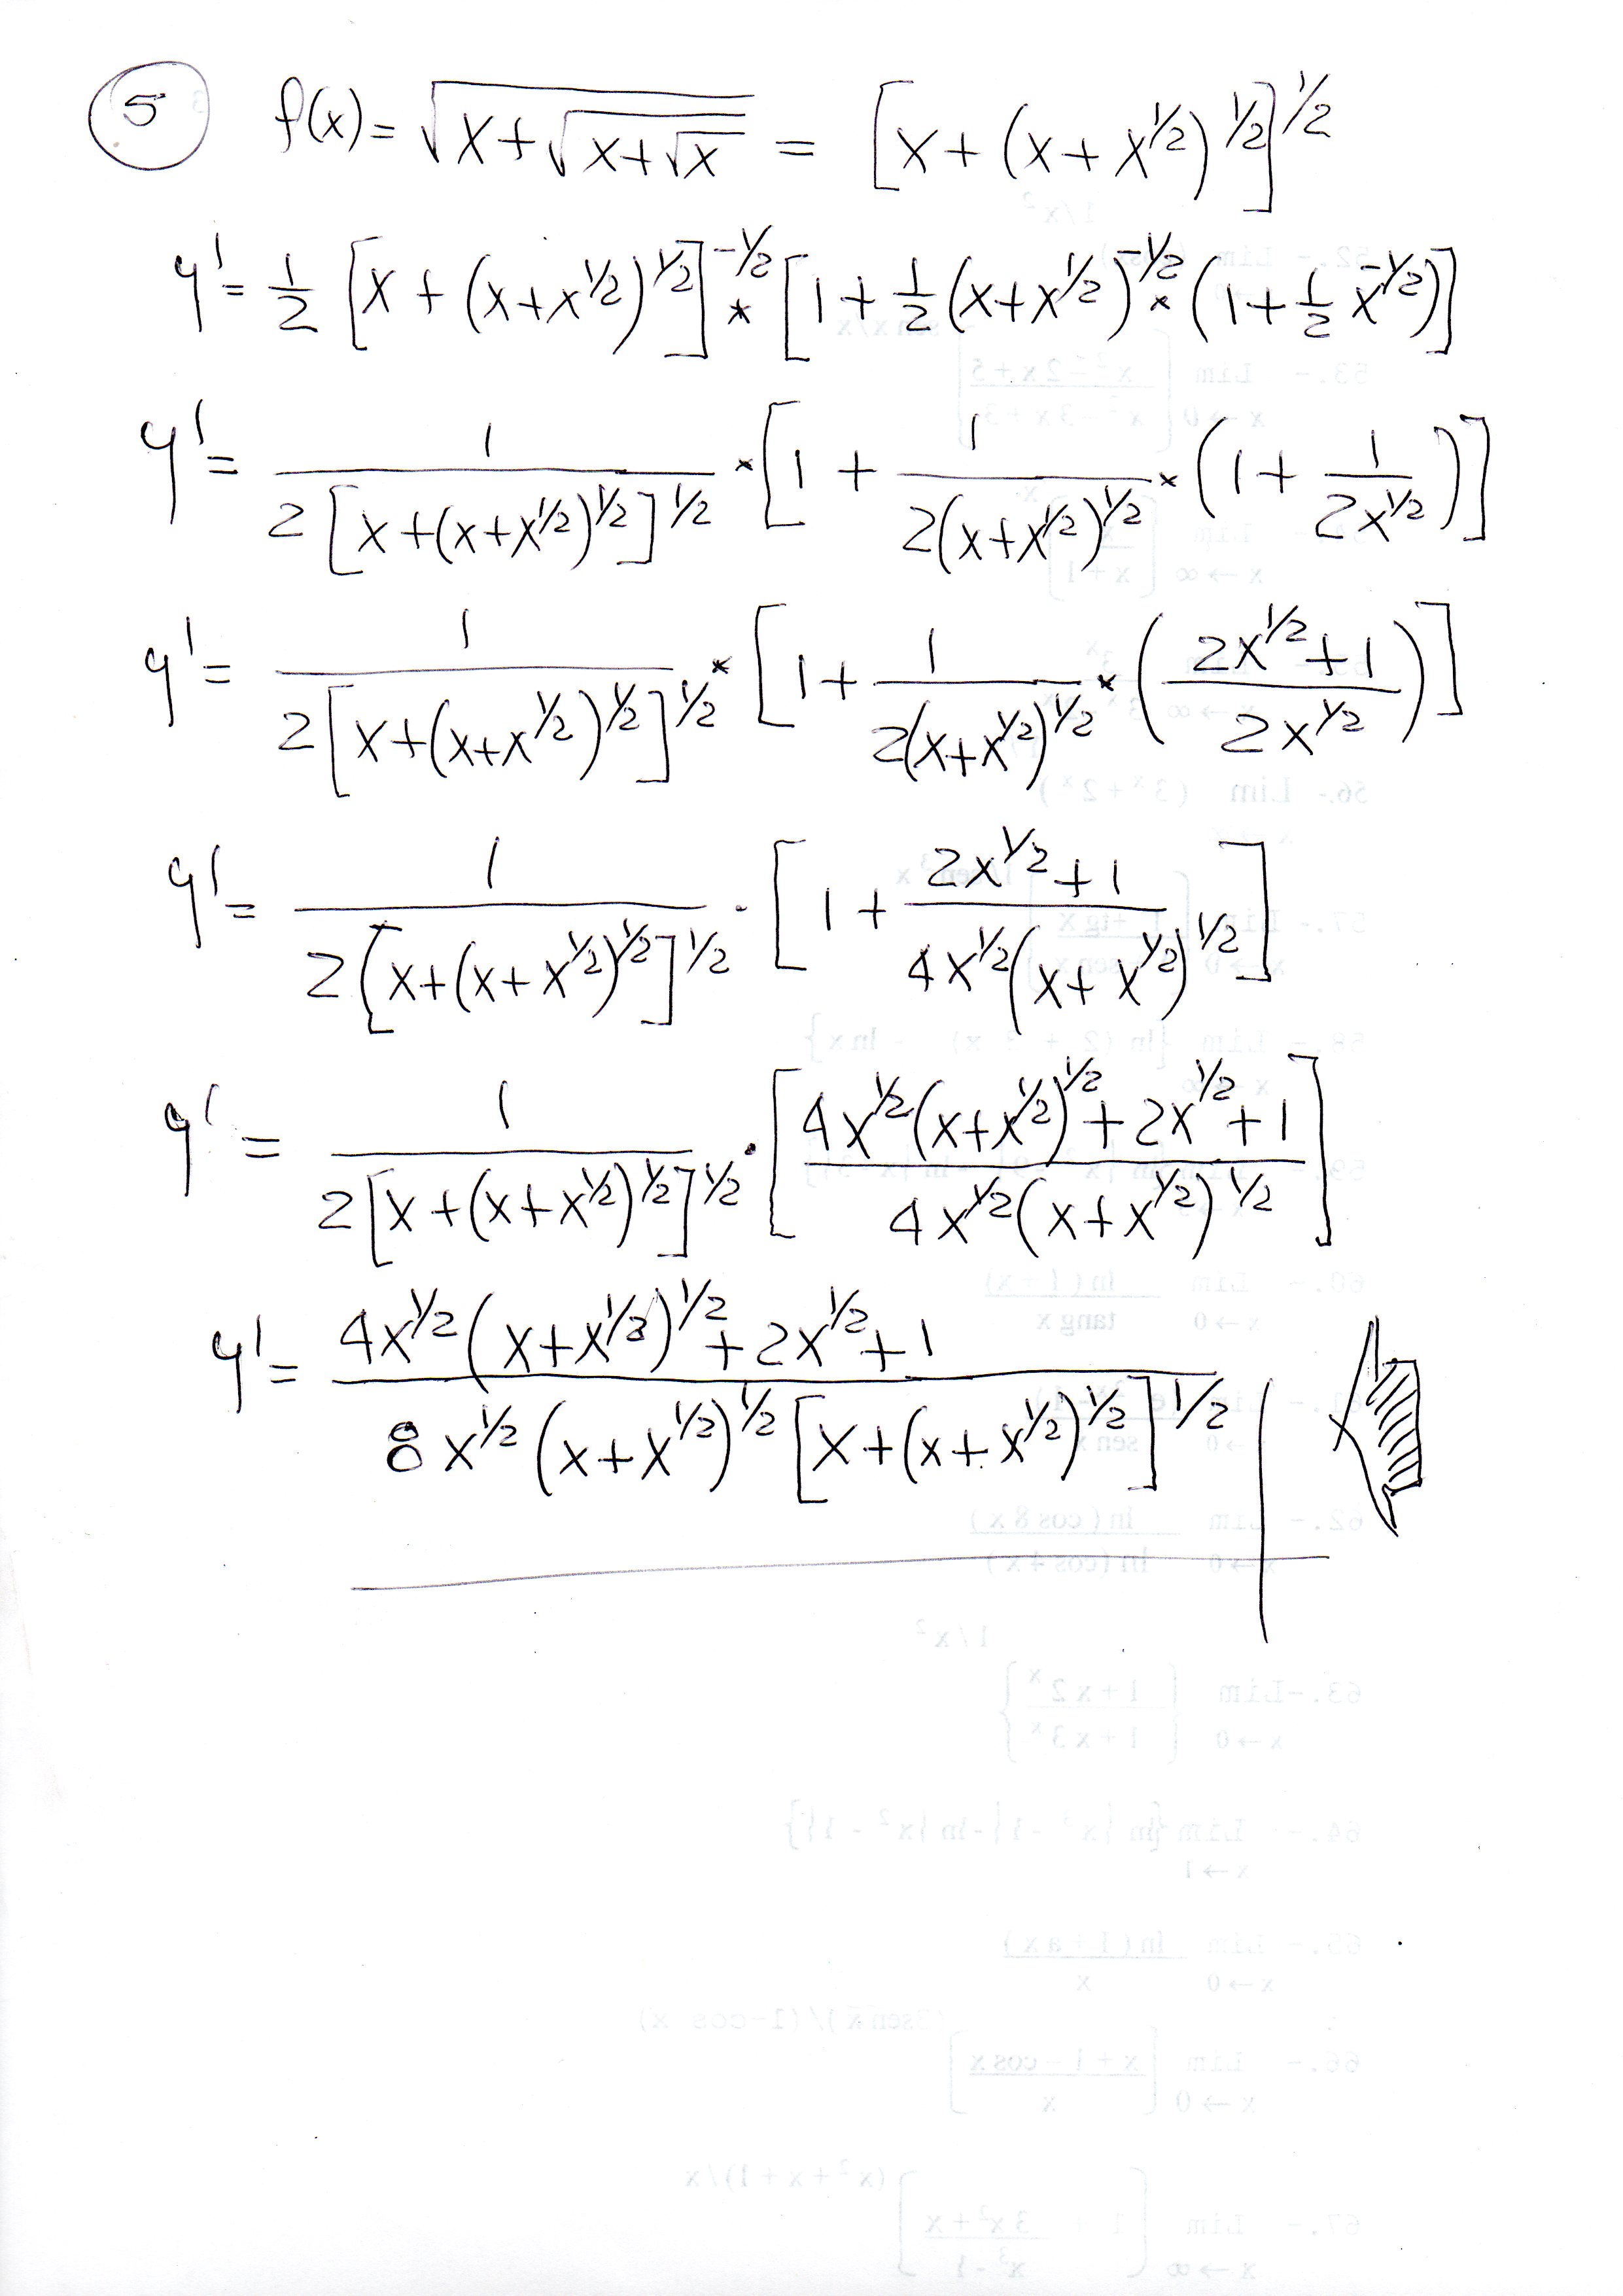 5 f(x) = √(x+√(x+√x)) = [x + (x + x^1/2)^1/2]^1/2
y' = 1/2 [x + (x+x^1/2)^1/2]^-1/2 * [1 + 1/2 (x+x^1/2)^-1/2 * (1 + 1/2 x^-1/2)]
y' = 1 / 2[x+(x+x^1/2)^1/2]^1/2 * [1 + 1 / 2(x+x^1/2)^1/2 * (1 + 1 / 2x^1/2)]
y' = 1 / 2[x+(x+x^1/2)^1/2]^1/2 * [1 + 1 / 2(x+x^1/2)^1/2 * (2x^1/2+1 / 2x^1/2)]
y' = 1 / 2[x+(x+x^1/2)^1/2]^1/2 · [1 + 2x^1/2+1 / 4x^1/2(x+x^1/2)^1/2]
y' = 1 / 2[x+(x+x^1/2)^1/2]^1/2 · [4x^1/2(x+x^1/2)^1/2+2x^1/2+1 / 4x^1/2(x+x^1/2)^1/2]
y' = 4x^1/2(x+x^1/2)^1/2+2x^1/2+1 / 8x^1/2(x+x^1/2)^1/2[x+(x+x^1/2)^1/2]^1/2